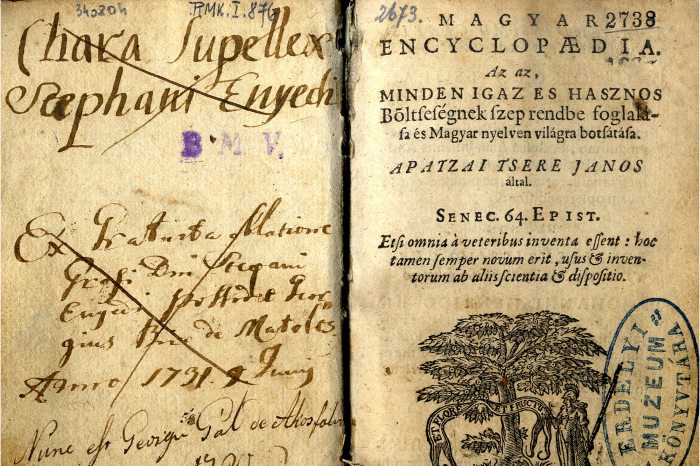 340204 RMK. I. 876
Chara Supellex
Stephani Enyedi
B. M. V.
Ex Gratuita
Dni Stepani
Enyedi Possidet Geor
gius
Anno 1731. 9 Junij
Nunc est Georgii Gál de
2673.
MAGYAR 2738
ENCYCLOPÆDIA.
Az az,
MINDEN IGAZ ES HASZNOS
Bőltseségnek szep rendbe foglalá-
sa és Magyar nyelven világra botsátása.
APATZAI TSERE JANOS
által.
SENEC. 64. EPIST.
Etsi omnia à veteribus inventa essent: hoc
tamen semper novum erit, usus & inven-
torum ab aliis scientia & dispositio.
ERDÉLYI MUZEUM KÖNYVTÁRA